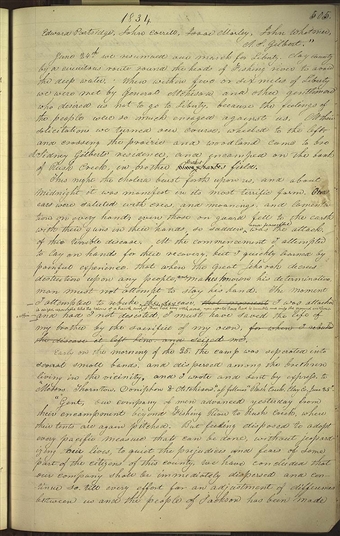 1834
606.
Edward Partridge, John Corrill, Isaac Morley, John Whitmer,
A. S. Gilbert."
June 24th we resumed our march for Liberty, Clay county
by a circuitous route round the heads of Fishing river to avoid
the deep water. When within five or six miles of Liberty
we were met by General Atchison and other gentlemen
who desired us not to go to Liberty, because the feelings of
the people were so much enraged against us. At their
solicitations we turned our course, wheeled to the left
and crossing the prairie and woodland came to bro
Sidney Gilberts residence, and encamped on the bank
of Rush Creek, in brother field.
This night the cholera burst forth upon us, and about
midnight it was manifest in its most terrific form, Our
ears were saluted with cries, and moanings, and lamenta-
tions on every hand; even those on guard fell to the earth
with their guns in their hands, so sudden and powerful was the attack
of this terrible disease. At the commencement I attempted
to lay on hands for their recovery, but I quickly learned by
painful experience that when the great Jehovah decrees
destruction upon any people, makes known his determination
man must not attempt to stay his hand. The moment
I attempted to rebuke the disease, I was attacked
and had I not desisted I must have saved the life of
my brother by the sacrifice of my own,
Early in the morning of the 25. the camp was separated into
small bands, and dispersed among the brethren
living in the vicinity, and I wrote and sent by express to
"Messrs. Thornton, Doniphan & Atchison" as follows: Rush Creek, Clay Co. June 25."
"Gent. Our company of men advanced yesterday from
their encampment beyond Fishing River to Rush Creek, where
their tents are again pitched. But feeling disposed to adopt
every pacific measure that can be done, without jeopard-
izing our lives, to quiet the prejudices and fears of some
part of the citizens of this county, we have concluded that
our company shall be immediately dispersed and con-
tinue so, till every effort for an adjustment of differences
between us and the people of Jackson has been made